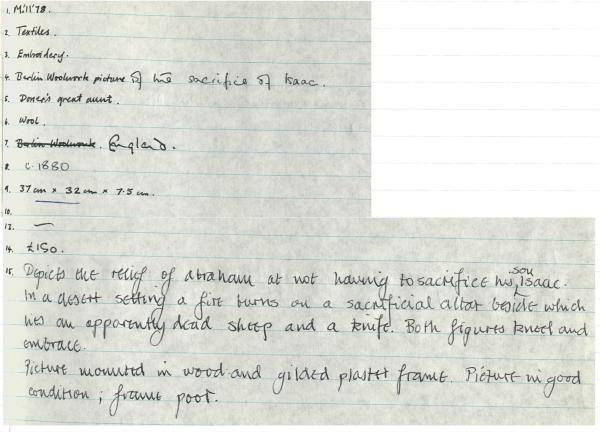 1. M.11'78.
2. Textiles.
3. Embroidery.
4. Berlin Woolwork picture of the sacrifice of Isaac.
5. Donor's great aunt.
6. Wool.
7. Berlin Woolwork. England.
8. c. 1880
9. 37 cm × 32 cm × 7.5 cm.
10.
13. —
14. £150.
15. Depicts the relief of abraham at not having to sacrifice his son, Isaac.
In a desert setting a fire burns on a sacrificial altar beside which
lies an apparently dead sheep and a knife. Both figures kneel and
embrace.
Picture mounted in wood and gilded plaster frame. Picture in good
condition; frame poor.